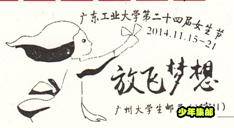 广东工业大学第二十四届女生节
2014.11.15-21
放飞梦想
广州大学生邮
少年集邮